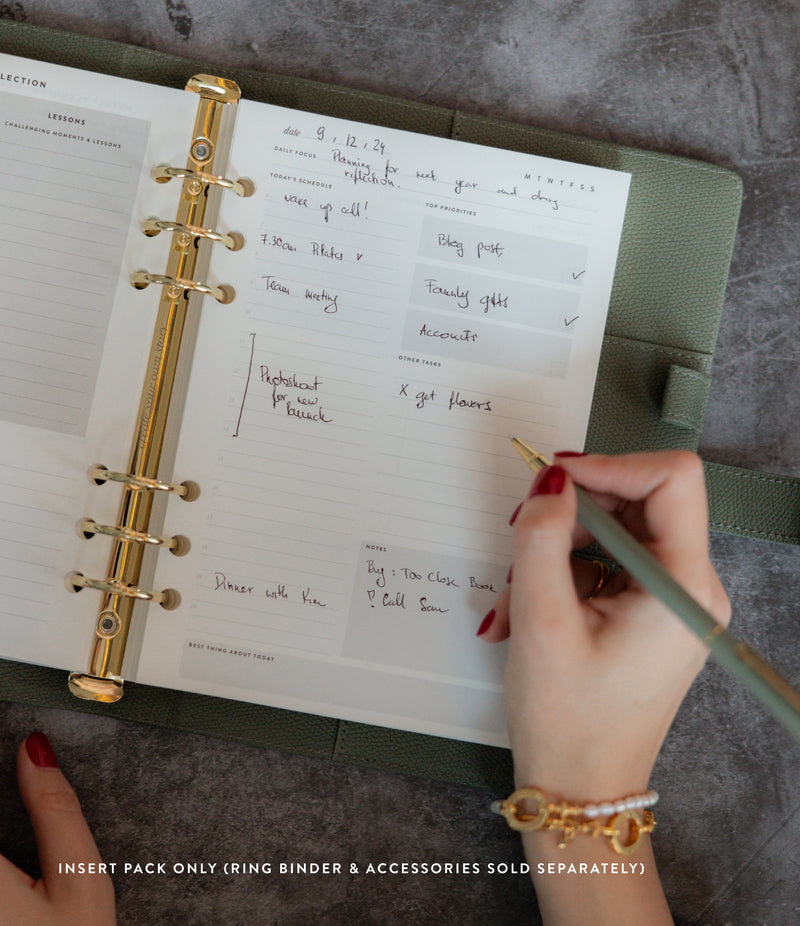 LECTION
LESSONS
CHALLENGING MOMENTS & LESSONS
date 9 , 12 , 24
M T W T F S S
DAILY FOCUS Planning for next year and doing
reflection.
TODAY'S SCHEDULE
wake up call!
7.30am Pilates
Team meeting
Photoshoot
for new
launch
Dinner with Kim
TOP PRIORITIES
Blog post,
Family gifts
Accounts
OTHER TASKS
X get flowers
NOTES
Buy : Too Close Book
! Call Sam
BEST THING ABOUT TODAY
INSERT PACK ONLY (RING BINDER & ACCESSORIES SOLD SEPARATELY)